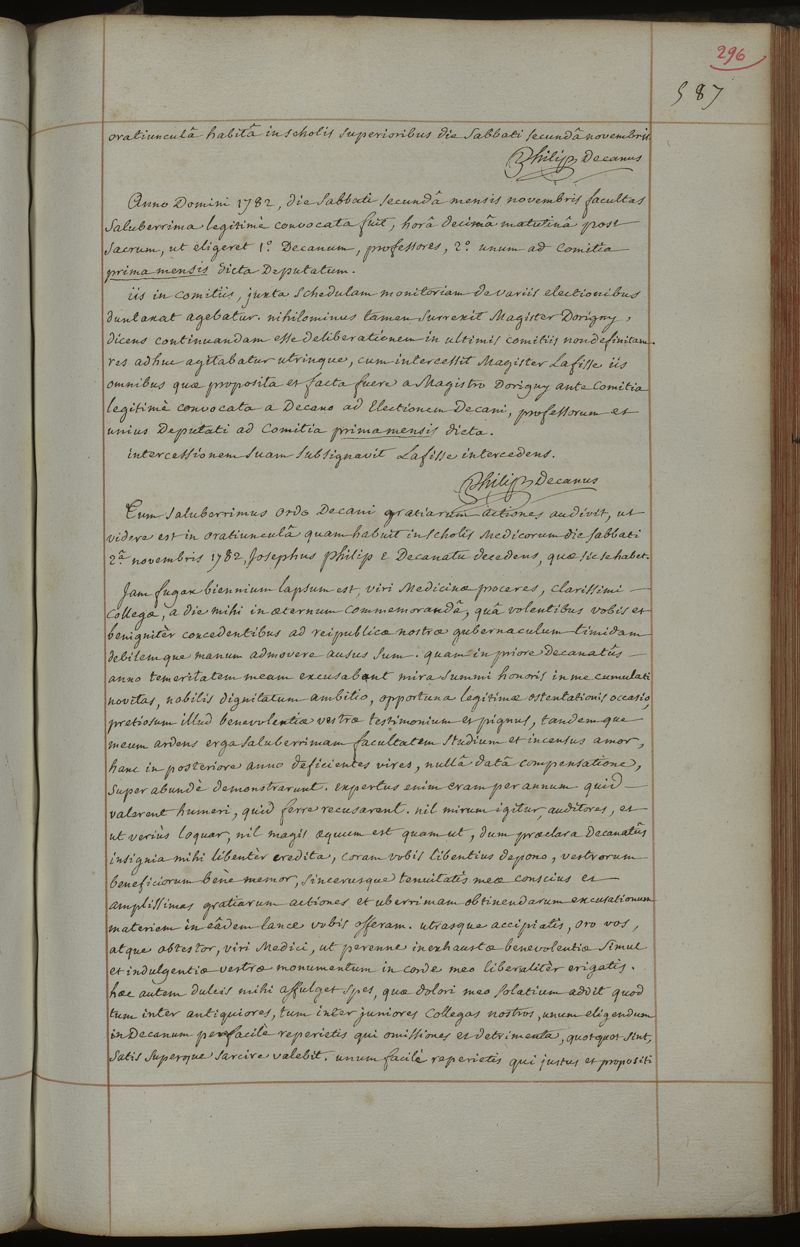 296
587
oratiunculâ habitâ in scholis superioribus die Sabbati secundâ novembris.
Philip Decanus
Anno Domini 1782, die Sabbati secundâ mensis novembris facultas
Saluberrima legitimè convocata fuit, horâ decimâ matutinâ post
Sacrum, ut eligeret 1º. Decanum, professores, 2º. unum ad Comitia
prima mensis dicta Deputatum.
iis in Comitiis, juxta Schedulam monitoriam de variis electionibus
duntaxat agebatur. nihilominus tamen surrexit Magister Dorigny,
dicens continuandam esse deliberationem in ultimis comitiis non definitam.
res adhuc agitabatur utrinque, cum intercessit Magister Lafisse iis
omnibus quæ proposita et facta fuere a Magistro Dorigny ante Comitia
legitimè convocata a Decano ad Electionem Decani, professorum et
unius Deputati ad Comitia prima mensis dicta.
intercessionem suam subsignavit Lafisse intercedens.
Philip Decanus
Cum Saluberrimus Ordo Decani gratiarum actiones audivit, ut
videre est in oratiunculâ quam habuit in scholis Medicorum die sabbati
2â. novembris 1782, Josephus Philip è Decanatu decedens, quæ sic se habet.
Jam fugax biennium lapsum est, viri Medicinæ proceres, clarissimi
Collegæ, a die mihi in æternum commemorandâ, quâ volentibus vobis et
benignitèr concedentibus ad reipublicæ nostræ gubernaculum timidam
debilemque manum admovere ausus sum. quam in priore Decanatûs
anno temeritatem meam excusabant mira summi honoris in me cumulati
novitas, nobilis dignitatum ambitio, opportuna legitimæ ostentationis occasio,
pretiosum illud benevolentiæ vestræ testimonium et pignus, tandemque
meum ardens erga saluberrimam facultatem studium et incensus amor,
hanc in posteriore anno deficientes vires, nullâ datâ compensatione,
superabundè demonstrarunt. expertus enim eram per annum quid
valerent humeri, quid ferre recusarent. nil mirum igitur, auditores, et
ut veriùs loquar, nil magis æquum est quam ut, dum præclara Decanatûs
insignia mihi libentèr credita, coram vobis libentius depono, vestrorum
beneficiorum benè memor, sincerusque tenuitatis meæ conscius et
amplissimas gratiarum actiones et uberrimam obtinendarum excusationum
materiem in eâdem lance vobis offeram. utrasque accipiatis, oro vos,
atque obtestor, viri Medici, ut perenne inexhaustæ benevolentiæ simul
et indulgentiæ vestræ monumentum in corde meo liberalitèr erigatis.
hæc autem dulcis mihi affulget spes, quæ dolori meo solatium addit quod
tum inter antiquiores, tum inter juniores Collegas nostros, unum eligendum
in Decanum perfacile reperietis qui omissiones et detrimenta, quotquot sint,
satis superque sarcire valebit. unum facilè reperietis qui justus et propositi